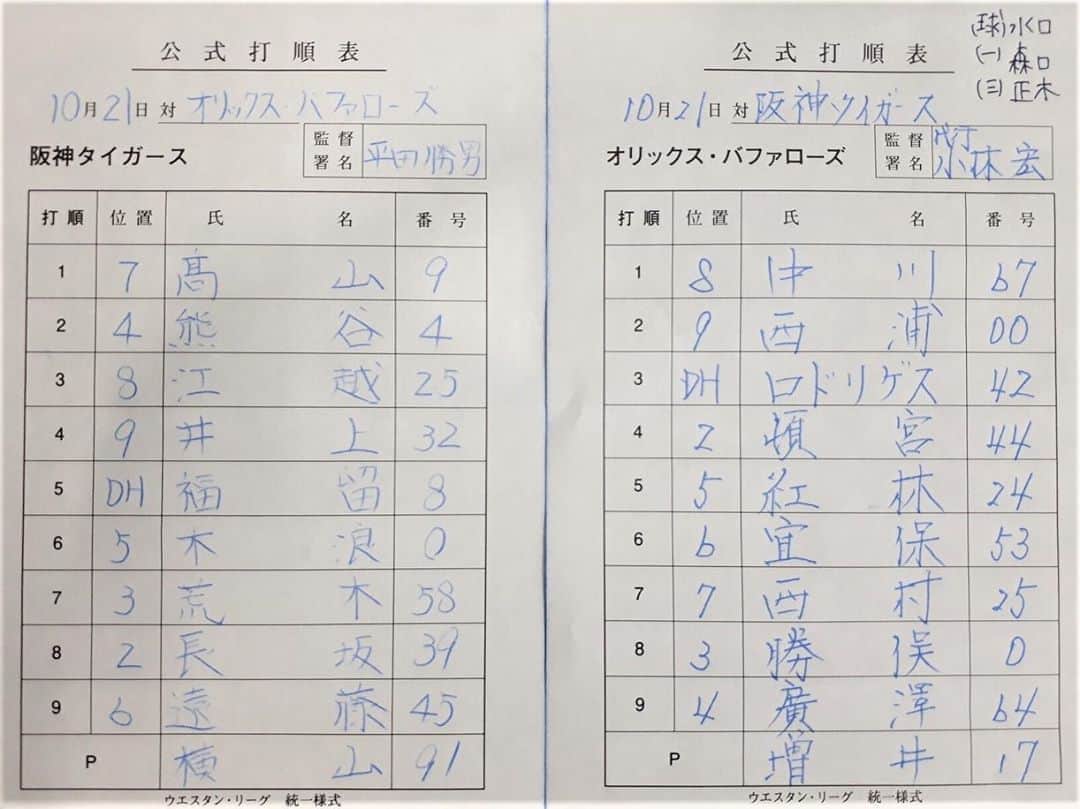 公式打順表
10月21日 対 オリックス・バファローズ
阪神タイガース
監督署名 平田勝男
打順 位置 氏名 番号
1 7 髙山 9
2 4 熊谷 4
3 8 江越 25
4 9 井上 32
5 DH 福留 8
6 5 木浪 0
7 3 荒木 58
8 2 長坂 39
9 6 遠藤 45
P 横山 91
ウエスタン・リーグ 統一様式
(球) 水口
(一) 森口
(三) 正木
公式打順表
10月21日 対 阪神タイガース
オリックス・バファローズ
監督署名 代行 小林宏
打順 位置 氏名 番号
1 8 中川 67
2 9 西浦 00
3 DH ロドリゲス 42
4 2 頓宮 44
5 5 紅林 24
6 6 宜保 53
7 7 西村 25
8 3 勝俣 0
9 4 廣澤 64
P 増井 17
ウエスタン・リーグ 統一様式